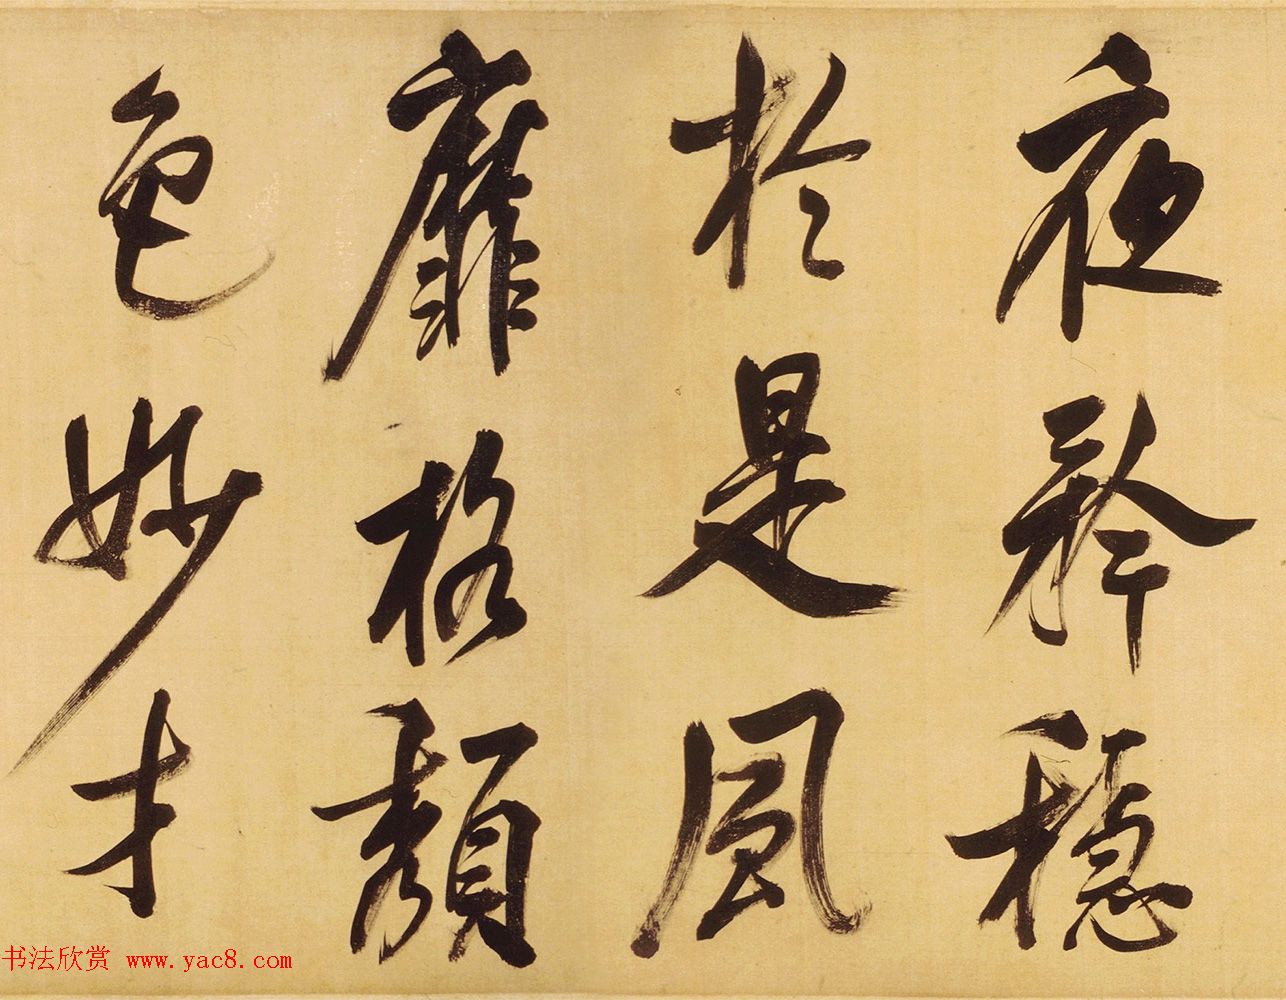 夜矜穩
於是風
靡格頹
色妙才
书法欣赏 www.yac8.com